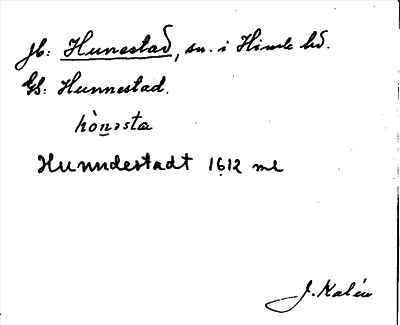 Jb: Hunestad, sn. i Himle hd.
GS: Hunnestad.
hònəsta
Hunndestadt 1612 ml
J. Kalén